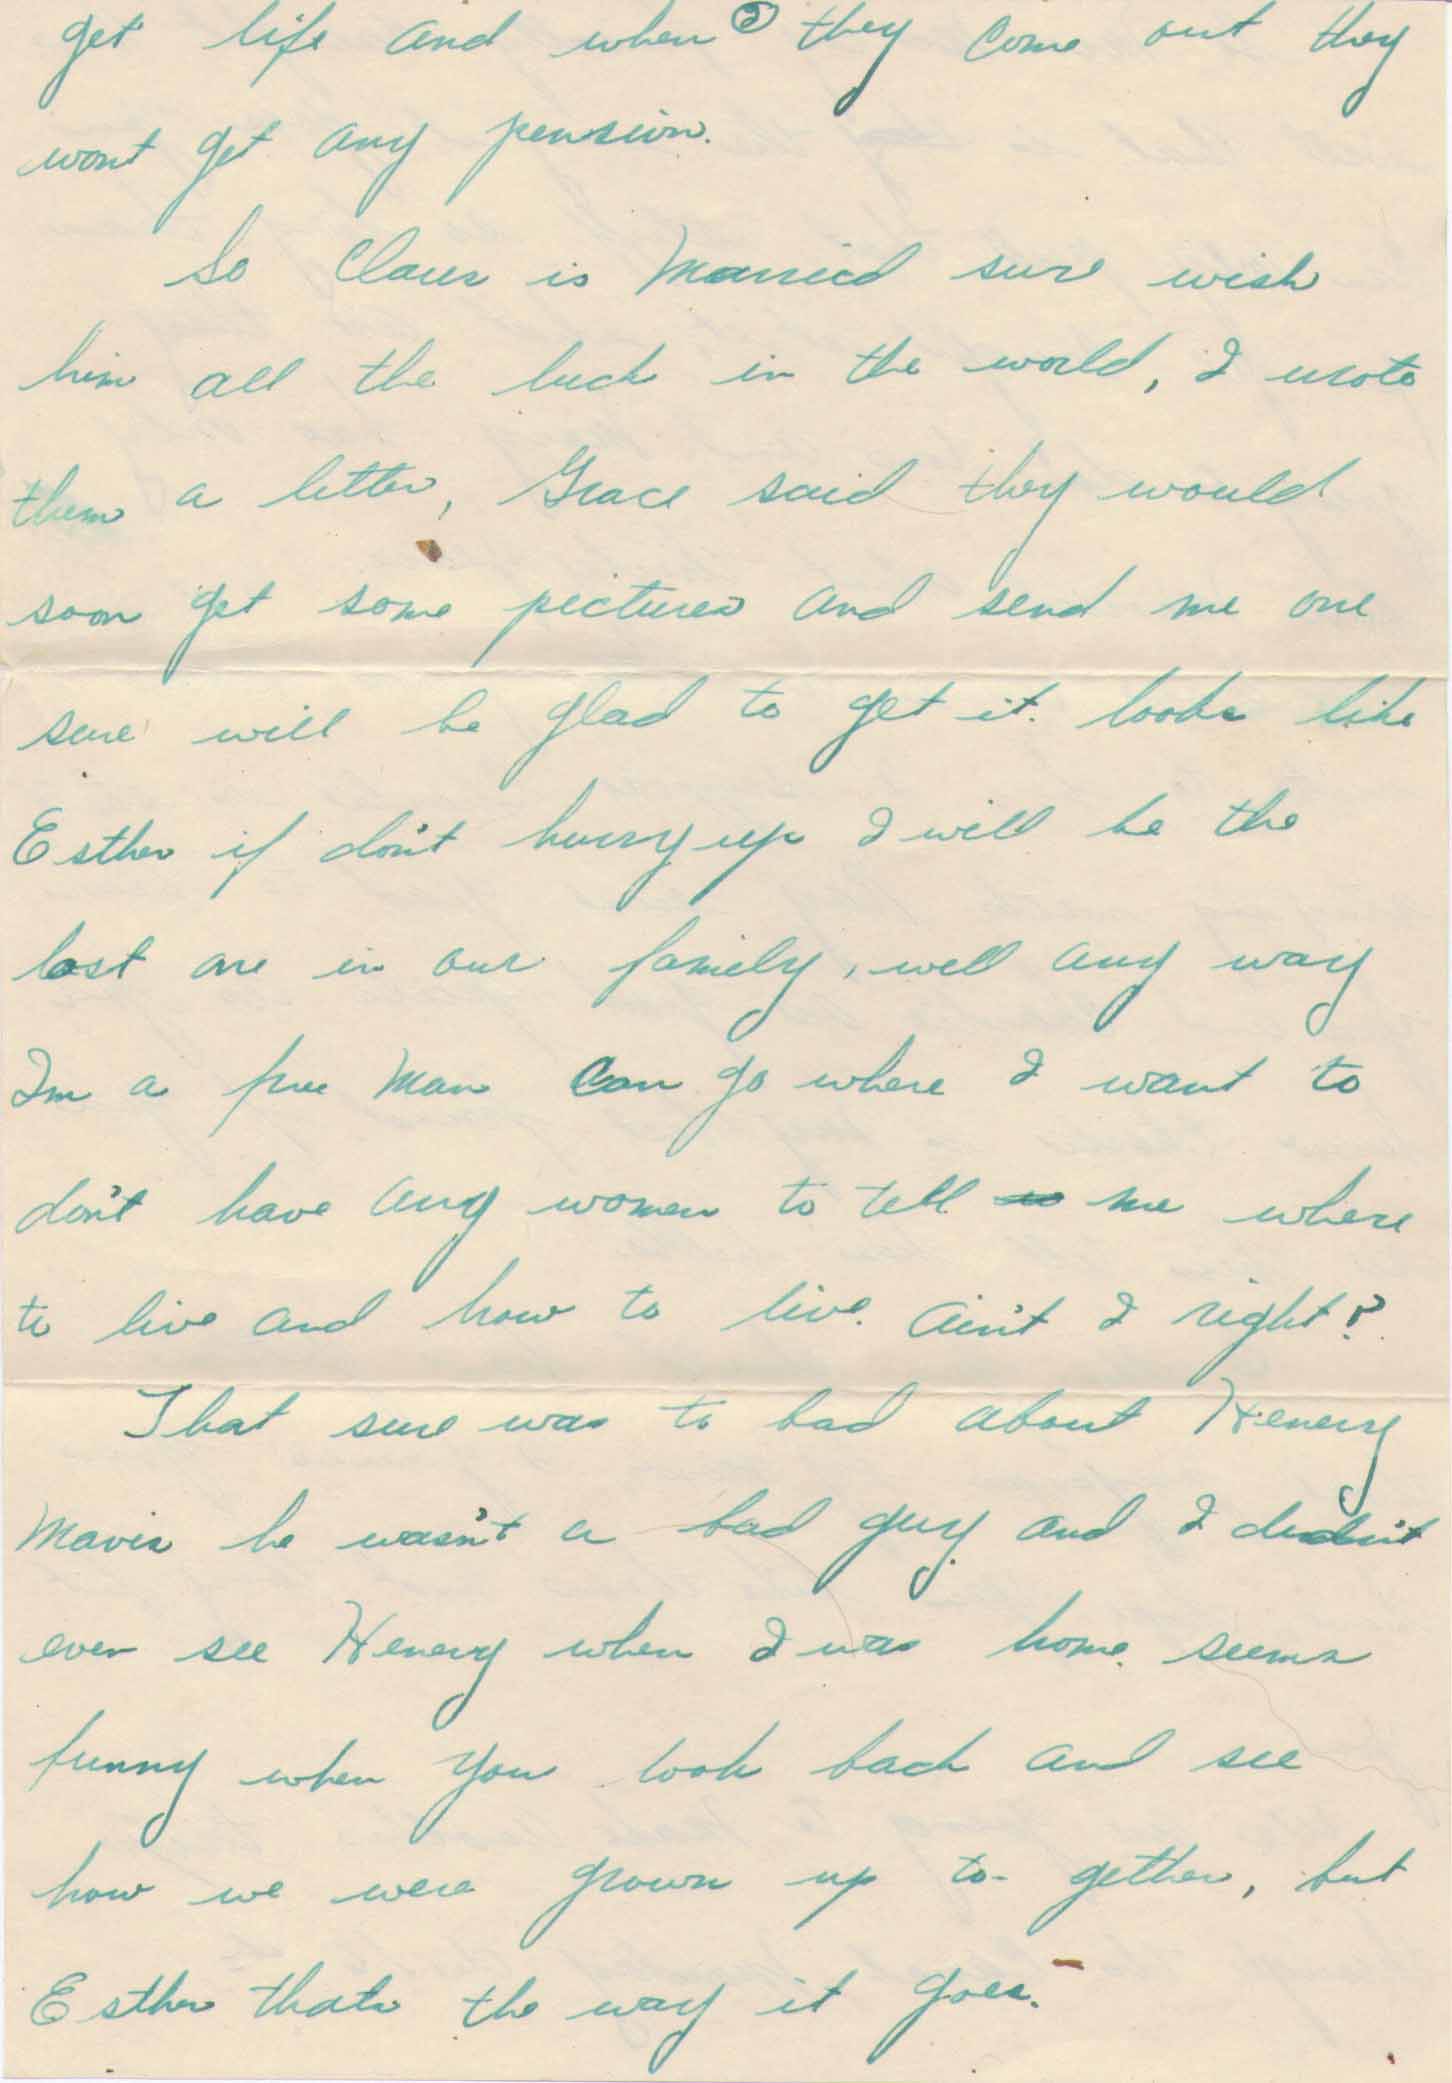 get life and when ② they come out they
wont get any pension.
So Claus is Married sure wish
him all the luck in the world, I wrote
them a letter, Grace said they would
soon get some pictures and send me one
sure will be glad to get it. looks like
Esther if don't hurry up I will be the
last one in our family, well any way
Im a free man can go where I want to
don't have any women to tell me where
to live and how to live. ain't I right?
That sure was to bad about Henery
Mavis he wasn't a bad guy and I dindn't
even see Henery when I was home. seems
funny when you look back and see
how we were grown up to-gether, but
Esther thats the way it goes.